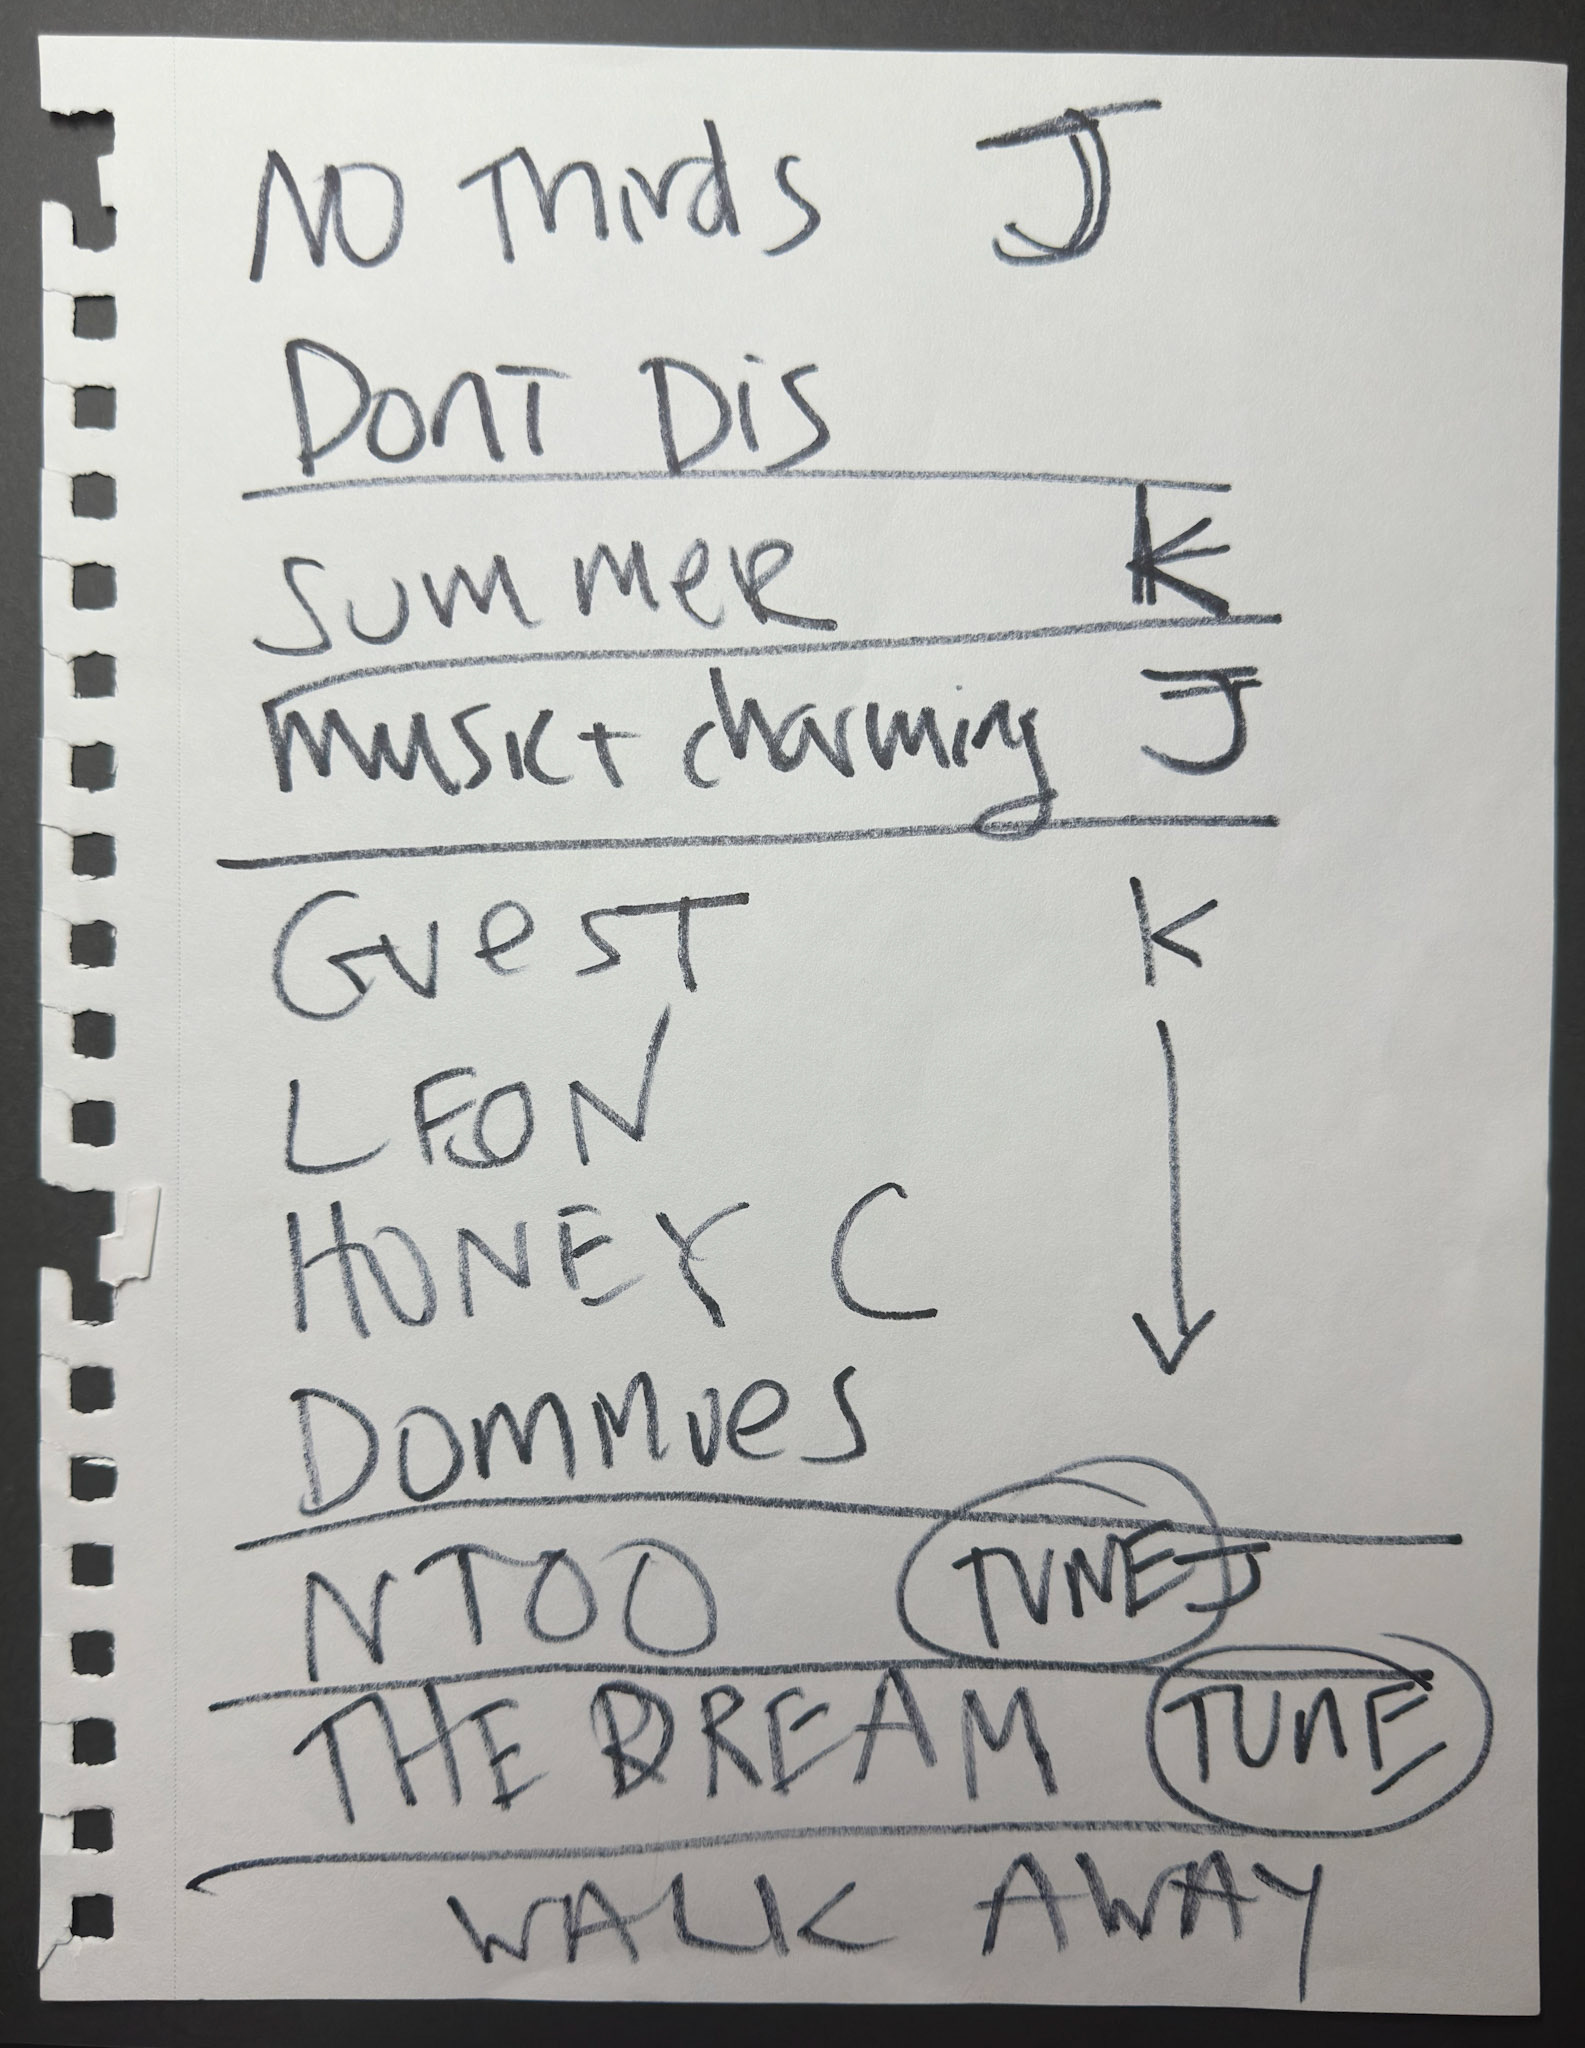 NO Thirds J
DonT Dis
SummeR K
Music + charming J
GuesT K
LEON
HONEY C
DOMMUes
NTOO TUNE J
THE DREAM TUNE
WALK AWAY